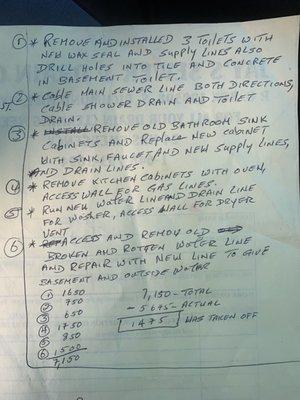 ① * REMOVE AND INSTALLED 3 TOILETS WITH
NEW WAX SEAL AND SUPPLY LINES ALSO
DRILL HOLES INTO TILE AND CONCRETE
IN BASEMENT TOILET.
② * CABLE MAIN SEWER LINE BOTH DIRECTIONS,
CABLE SHOWER DRAIN AND TOILET
DRAIN.
③ * INSTALL REMOVE OLD BATHROOM SINK
CABINETS AND REPLACE NEW CABINET
WITH SINK, FAUCET AND NEW SUPPLY LINES,
AND DRAIN LINES.
④ * REMOVE KITCHEN CABINETS WITH OVEN,
ACCESS WALL FOR GAS LINES.
⑤ * RUN NEW WATER LINE AND DRAIN LINE
FOR WASHER, ACCESS WALL FOR DRYER
VENT
⑥ * ACCESS AND REMOVE OLD
BROKEN AND ROTTEN WATER LINE
AND REPAIR WITH NEW LINE TO GIVE
BASEMENT AND OUTSIDE WATER
① 1650
② 750
③ 650
④ 1750
⑤ 850
⑥ 1500
7,150
7,150 - TOTAL
- 5675 - ACTUAL
1475 WAS TAKEN OFF